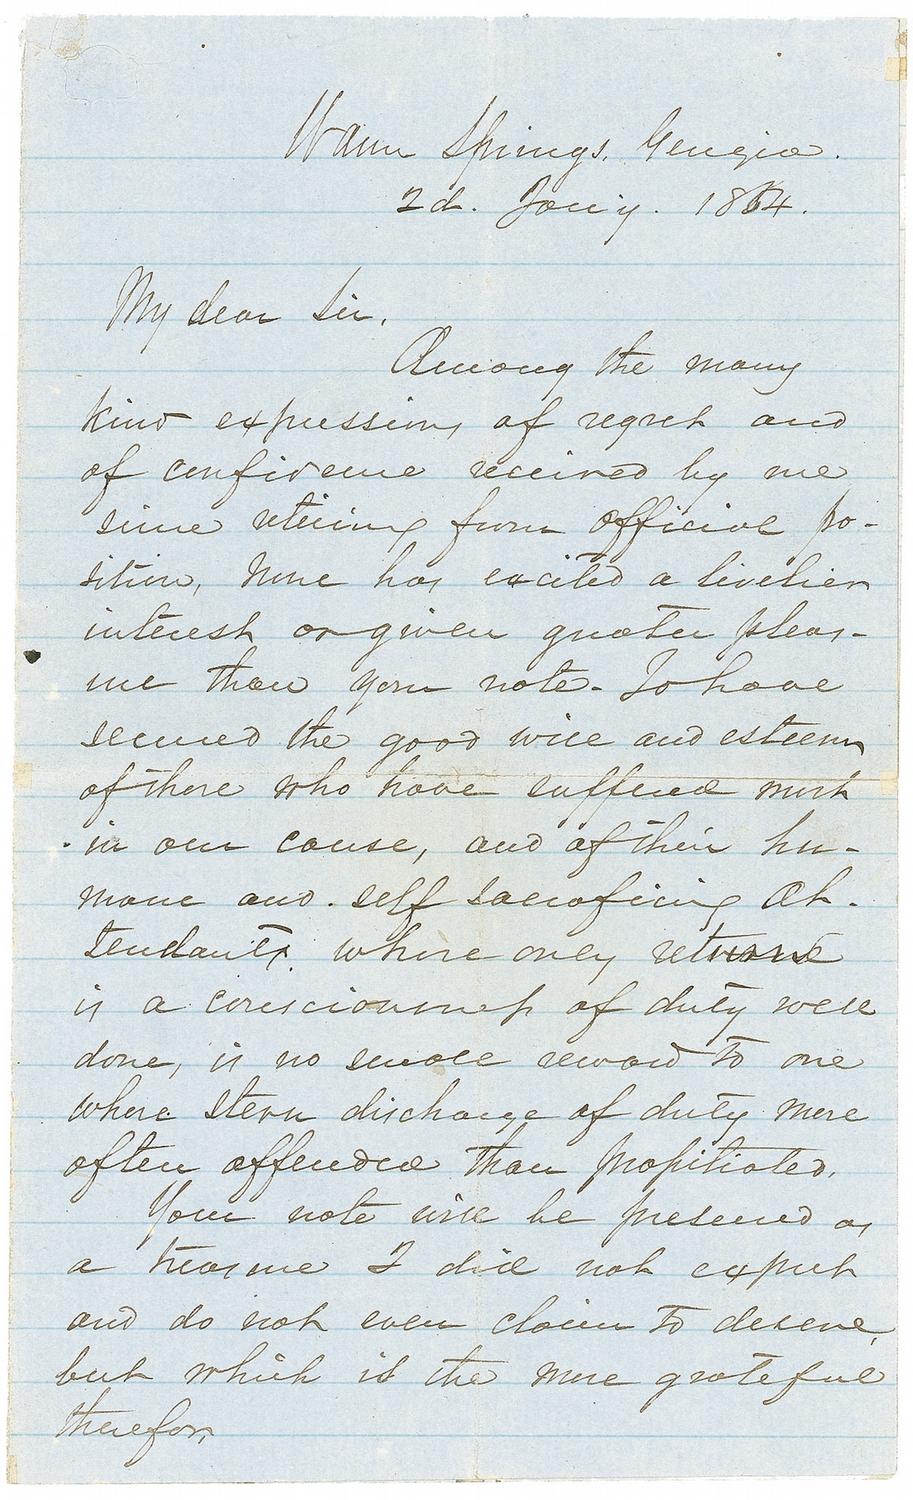 Warm Springs, Georgia.
2d. Jany. 1864.
My dear Sir,
Among the many
kind expressions of regret and
of confidence received by me
since retiring from official po-
sition, none has excited a livelier
interest or given greater pleas-
ure than your note. To have
secured the good will and esteem
of those who have suffered most
in our cause, and of their hu-
mane and self sacrificing At-
tendants, whose only return
is a consciousness of duty well
done, is no small reward to one
whose stern discharge of duty more
often offended than propitiated.
Your note will be preserved as
a treasure I did not expect
and do not even claim to deserve,
but which is the more grateful
therefor.